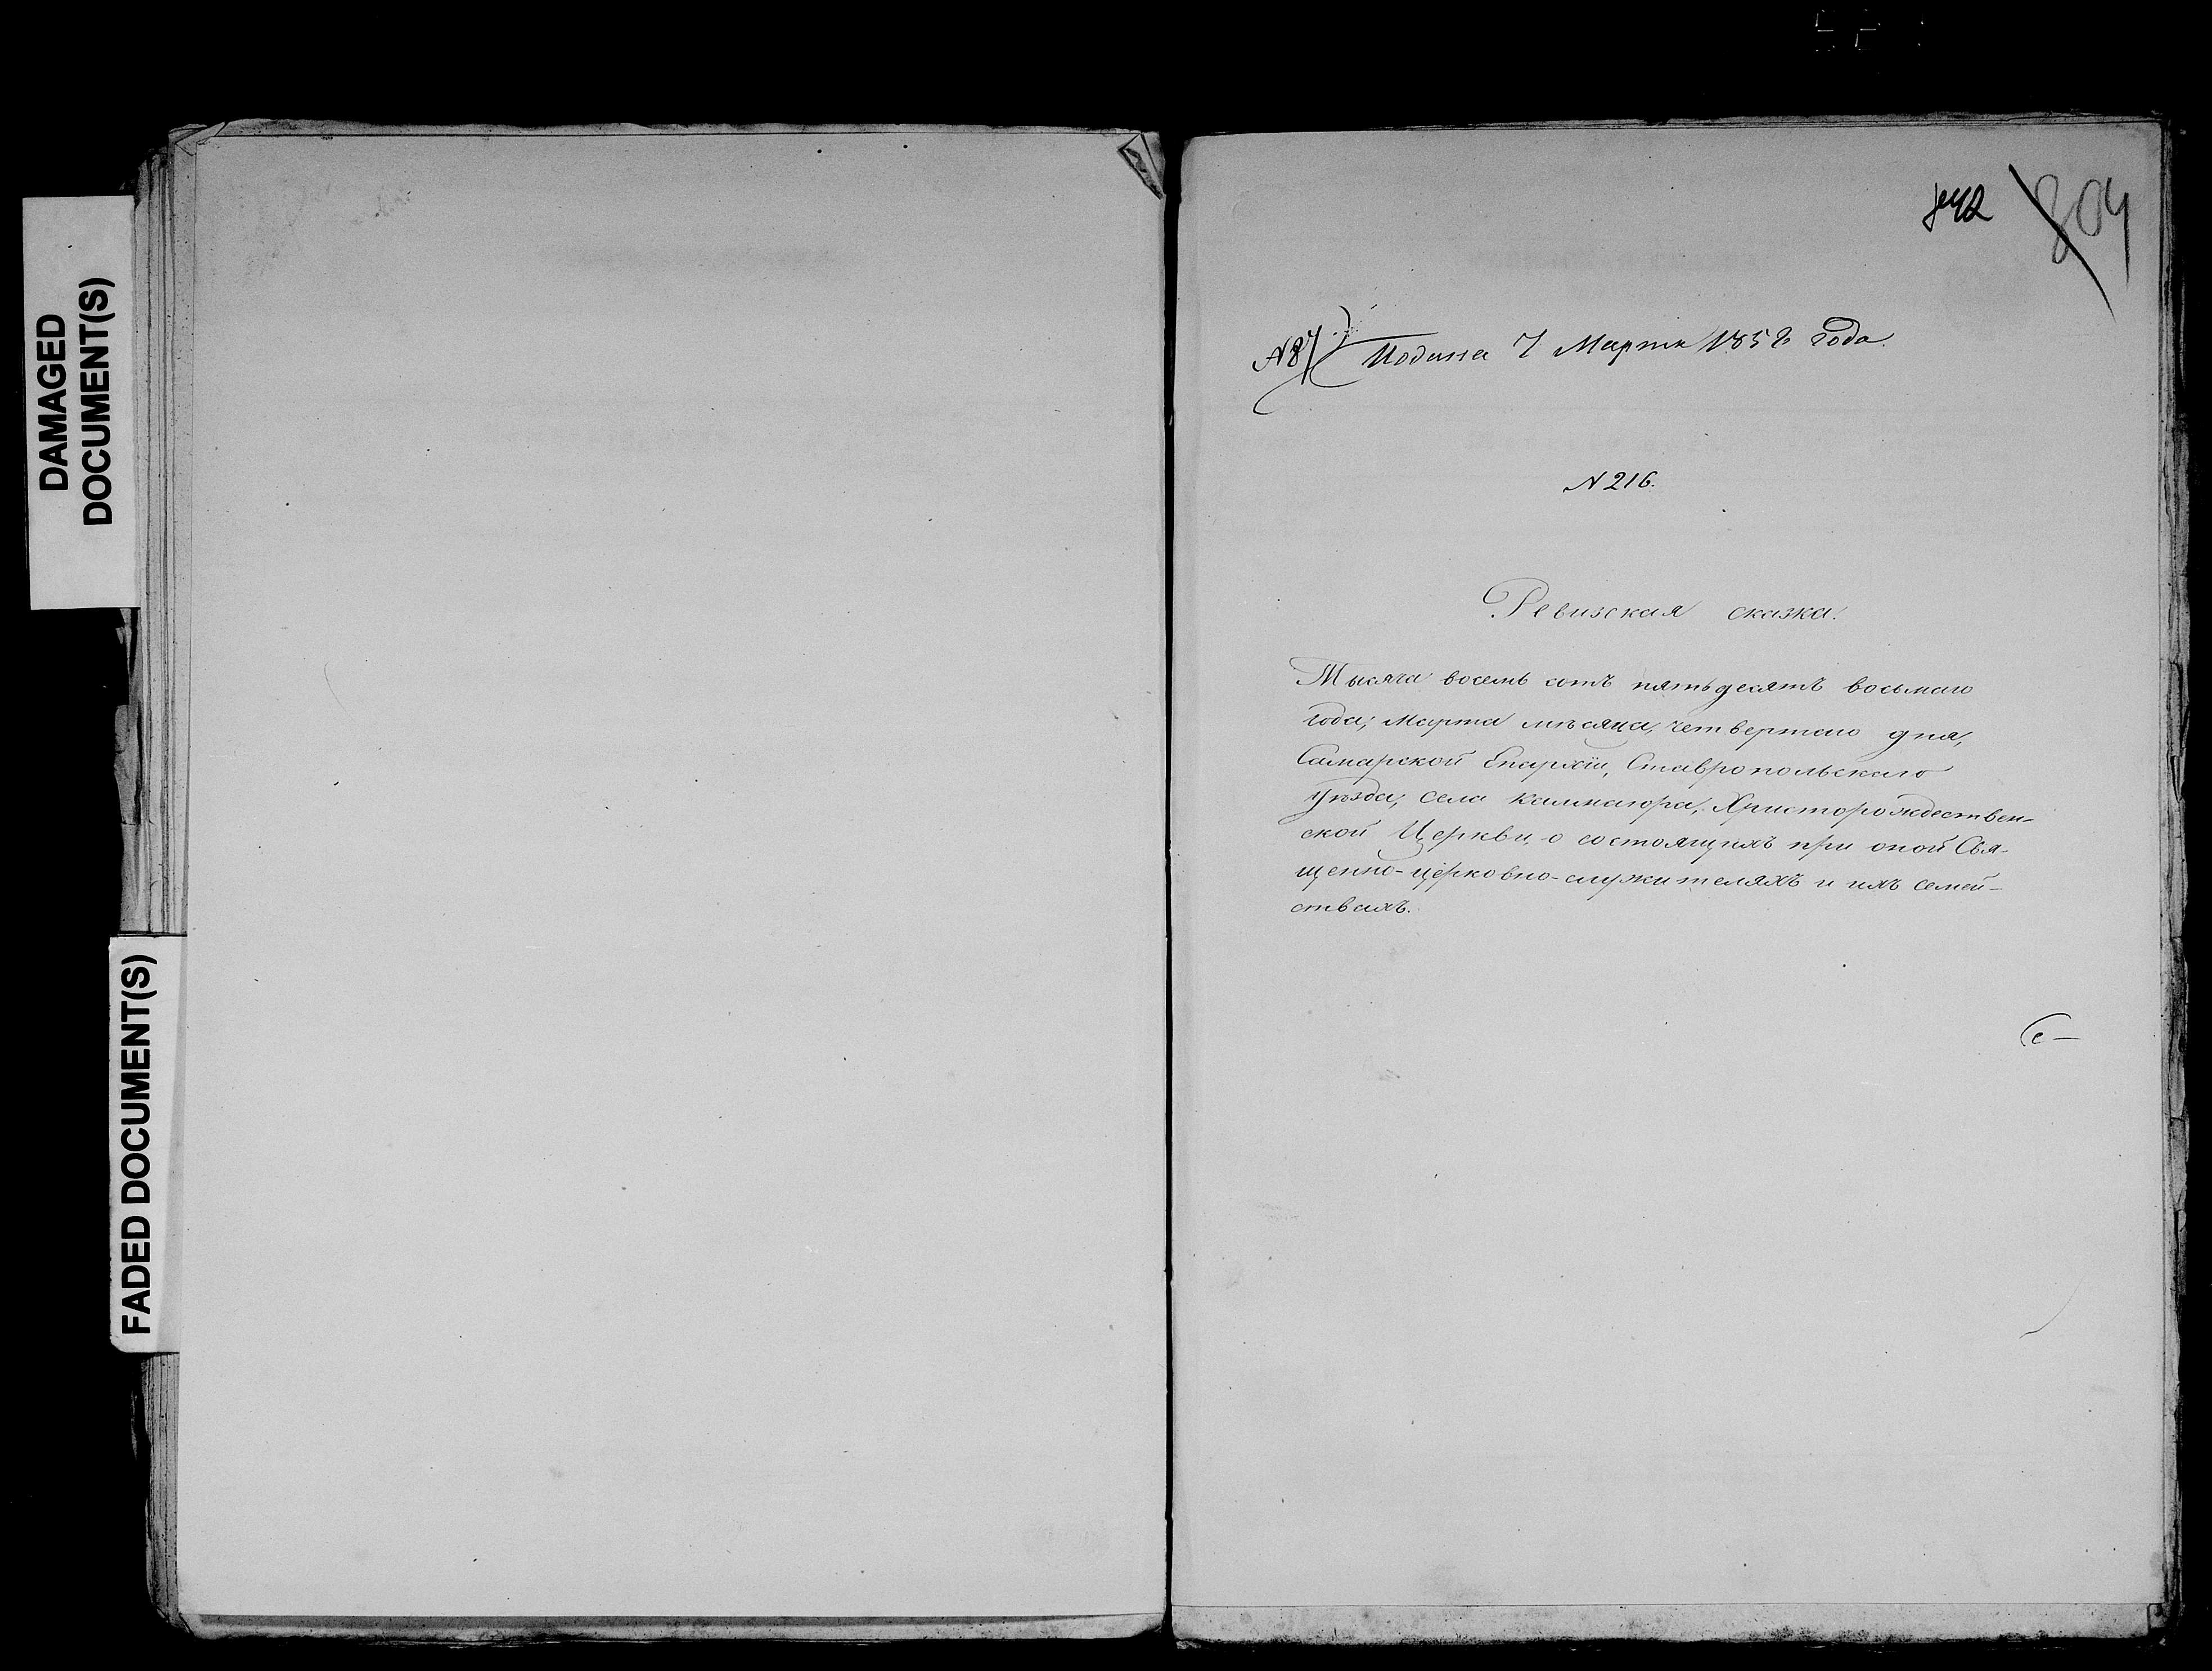 DAMAGED
DOCUMENT(S)
FADED DOCUMENT(S)
842
804
N 87) Подана 7 Марта 1858 года.
N 216.
Ревизская сказка.
Тысяча восемь сотъ пятьдесятъ восьмаго
года, Марта мѣсяца, четвертаго дня,
Самарской Епархіи, Ставропольскаго
уѣзда, села Калмаюра, Христорождествен-
ской Церкви, о состоящихъ при оной Свя-
щенно-церковно-служителяхъ и ихъ семей-
ствахъ.